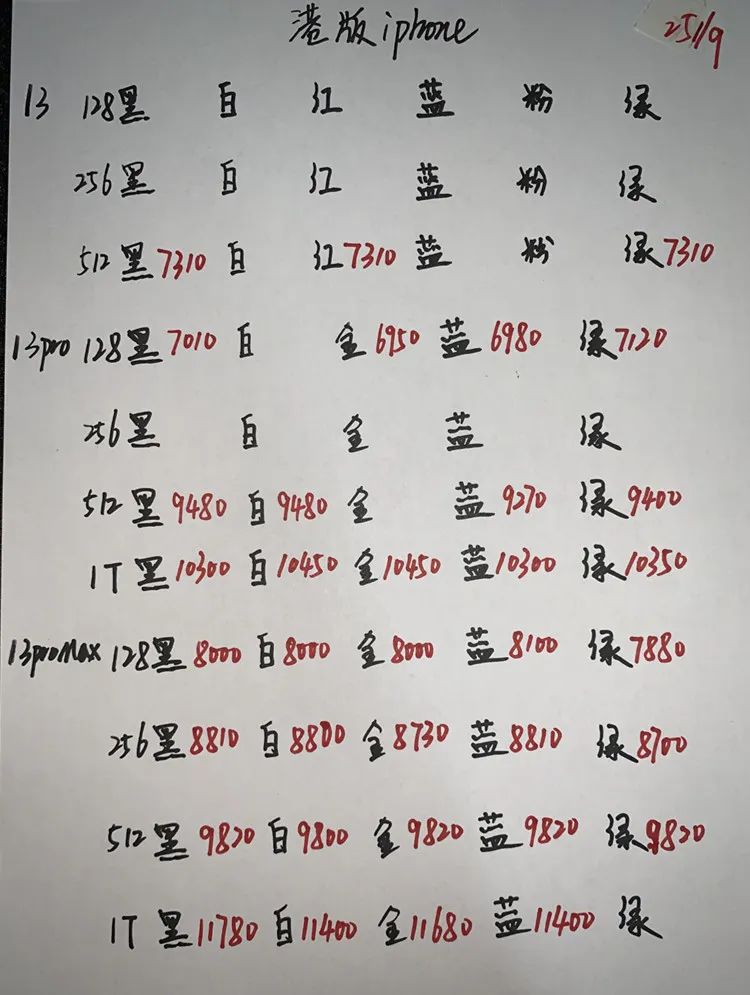 港版iphone 25/1/9
13 128黑 白 红 蓝 粉 绿
256黑 白 红 蓝 粉 绿
512黑7310 白 红7310 蓝 粉 绿7310
13pro 128黑7010 白 金6950 蓝6980 绿7120
256黑 白 金 蓝 绿
512黑9480 白9480 金 蓝9270 绿9400
1T黑10300 白10450 金10450 蓝10300 绿10350
13proMax 128黑8000 白8000 金8000 蓝8100 绿7880
256黑8810 白8800 金8730 蓝8810 绿8700
512黑9820 白9800 金9820 蓝9820 绿9820
1T黑11780 白11400 金11680 蓝11400 绿